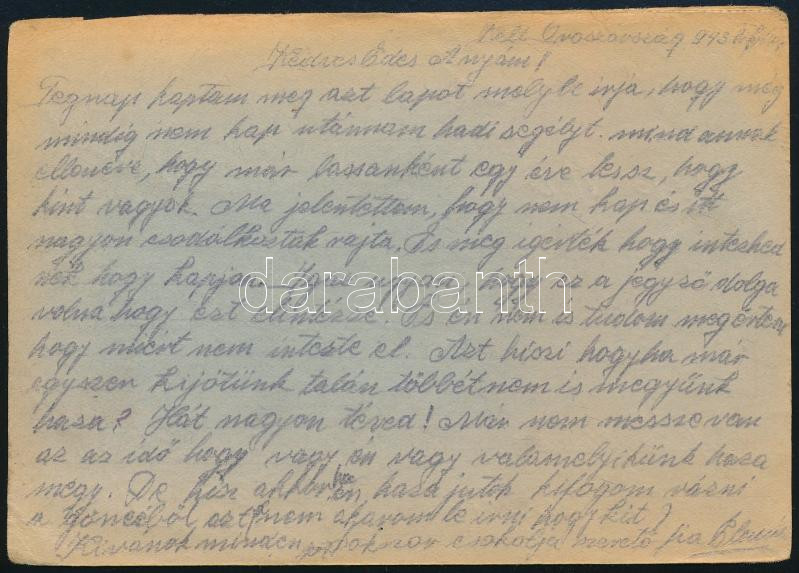 Kelt Oroszország 943
Kedves Édes Anyám!
Tegnap kaptam meg azt lapot melybe irja, hogy még
mindig nem kap utánnam hadi segélyt. mind annak
ellenére, hogy már lassanként egy éve lessz, hogy
kint vagyok. Ma jelentettem, hogy nem kap és itt
nagyon csodálkoztak rajta. És meg igérték hogy intézked
nek hogy kapjon. hogy ez a jegyző dolga
volna hogy ezt elintézze. És én nem is tudom megérteni
hogy miért nem intézte el. Azt hiszi hogyha már
egyszer kijötünk talán többét nem is megyünk
haza? Hát nagyon téved! Már nem messze van
az az idő hogy vagy én vagy valamelyikünk haza
megy. De ha én haza jutok kifogom rázni
a göncéből azt (nem akarom le irni hogy kit)
Kivánok minden jót sokszor csókolja szerető fia
darabanth